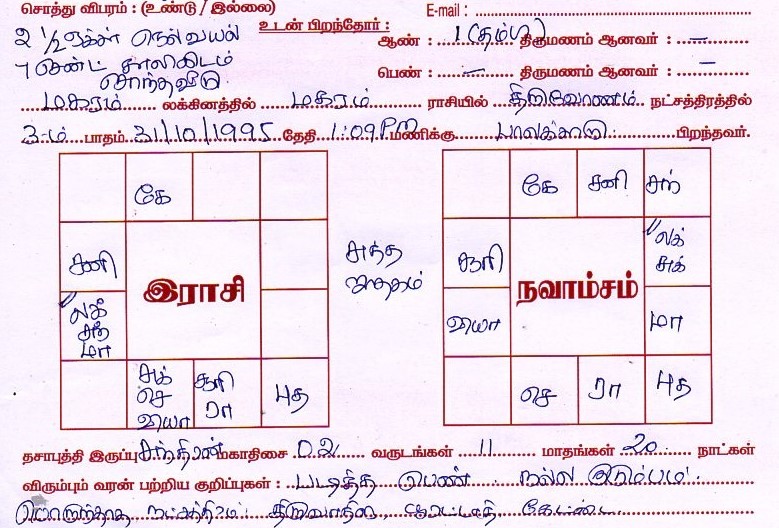 சொத்து விபரம் : (உண்டு / இல்லை) E-mail :
2 ½ ஏக்கர் நெல்வயல் உடன் பிறந்தோர் : ஆண் : 1 (தம்பி) திருமணம் ஆனவர் : –
7 சென்ட் காலியிடம் பெண் : – திருமணம் ஆனவர் : –
சொந்தவீடு
மகரம் லக்கினத்தில் மகரம் ராசியில் திருவோணம் நட்சத்திரத்தில்
3-ம் பாதம் 31/10/1995 தேதி 1:09 PM மணிக்கு பாலக்காடு பிறந்தவர்.
கே
கே சனி சந்
சனி
சுத்த
சூரி
லக் சுக்
இராசி
ஜாதகம்
நவாம்சம்
லக் சந் மா
வியா
மா
சுக் செ வியா
சூரி ரா
புத
செ
ரா
புத
தசாபுத்தி இருப்பு சந்திரன் மகாதிசை 0.2 வருடங்கள் 11 மாதங்கள் 20 நாட்கள்
விரும்பும் வரன் பற்றிய குறிப்புகள் : படித்த பெண் நல்ல குடும்பம்
பொருந்தாத நட்சத்திரம் திருவாதிரை, கேட்டை.